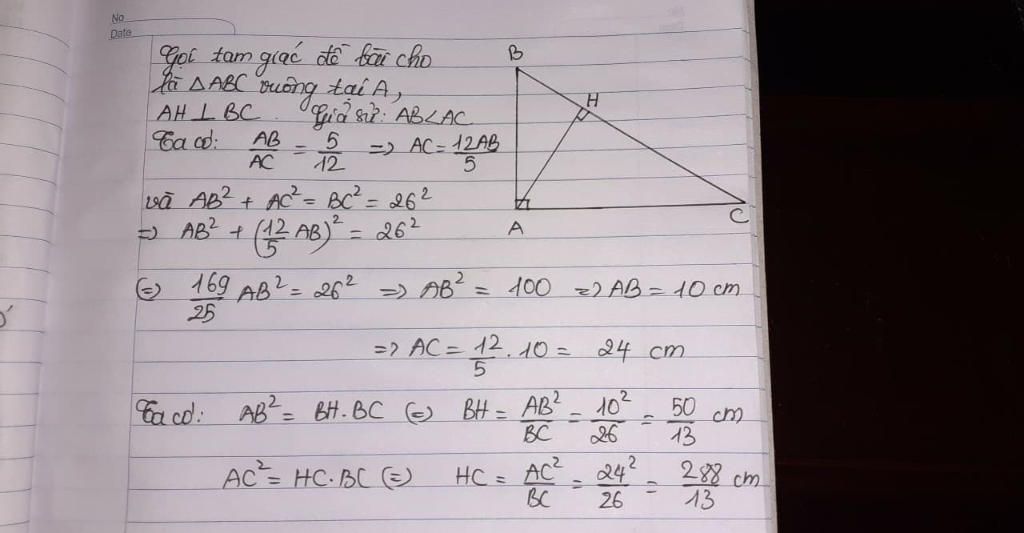 No
Date
Gọi tam giác đề bài cho
là △ABC vuông tại A,
AH ⊥ BC. Giả sử: AB < AC
Ta có: AB/AC = 5/12 => AC = 12AB/5
và AB² + AC² = BC² = 26²
=> AB² + (12/5 AB)² = 26²
(=) 169/25 AB² = 26² => AB² = 100 => AB = 10 cm
=> AC = 12/5 . 10 = 24 cm
Ta có: AB² = BH.BC (=) BH = AB²/BC = 10²/26 = 50/13 cm
AC² = HC.BC (=) HC = AC²/BC = 24²/26 = 288/13 cm
B
H
A
C